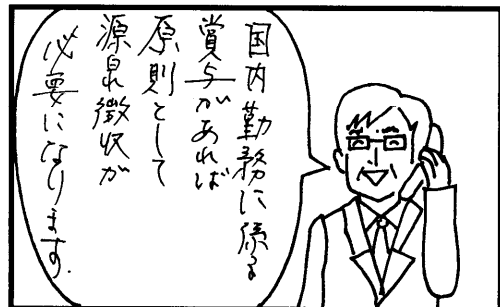 国内勤務に係る
賞与があれば
原則として
源泉徴収が
必要になります.